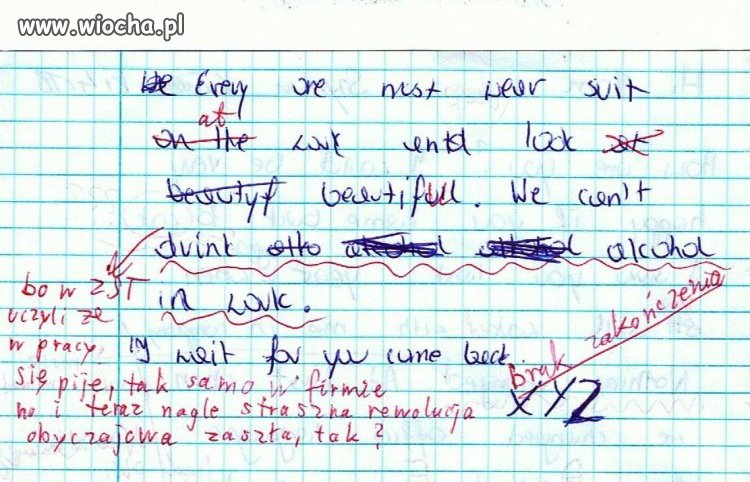 www.wiocha.pl
We Every one must wear suit
at
on the work look at
beautyf beautifull. We can't
drink alko alcohol alcohol alcohol
in work.
bo w ZST
uczyli że
w pracy
się pije, tak samo w firmie
no i teraz nagle straszna rewolucja
obyczajowa zaszła, tak?
wait for you come back.
Brak zakończenia
XYZ